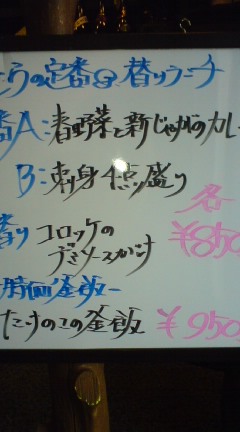 らの定番日替りランチ
番A:春野菜と新じゃがのカレ
B:刺身4点盛り
各
替り コロッケの ¥850
デミソースがけ
特価釜飯
たけのこの釜飯 ¥950